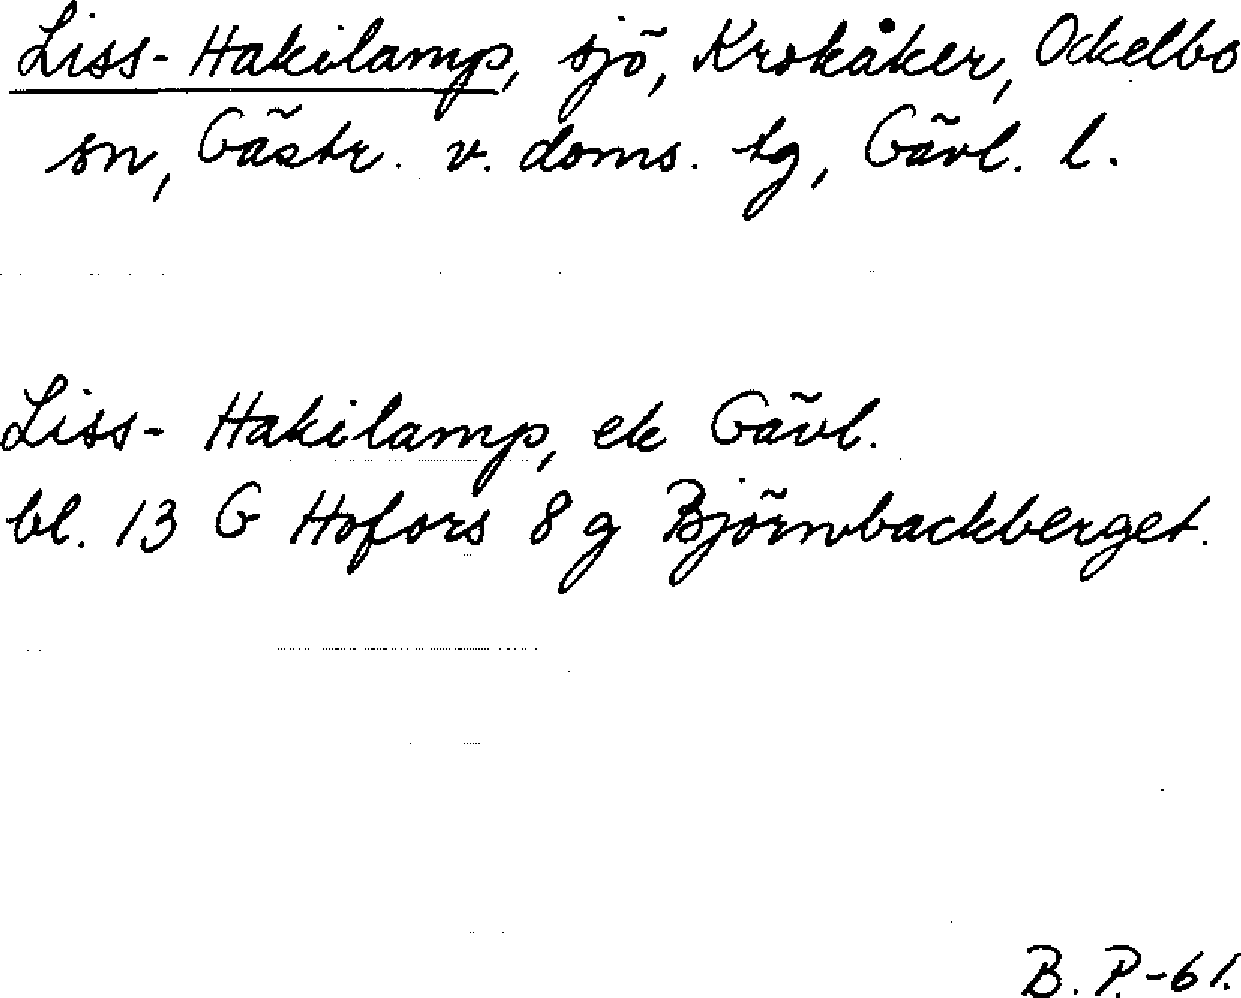 Liss-Hakilamp, sjö, Krokåker, Ockelbo
sn, Gästr. v. doms. tg, Gävl. l.
Liss-Hakilamp, ek Gävl.
bl. 13 G Hofors 8 g Björnbackberget.
B. P.-61.